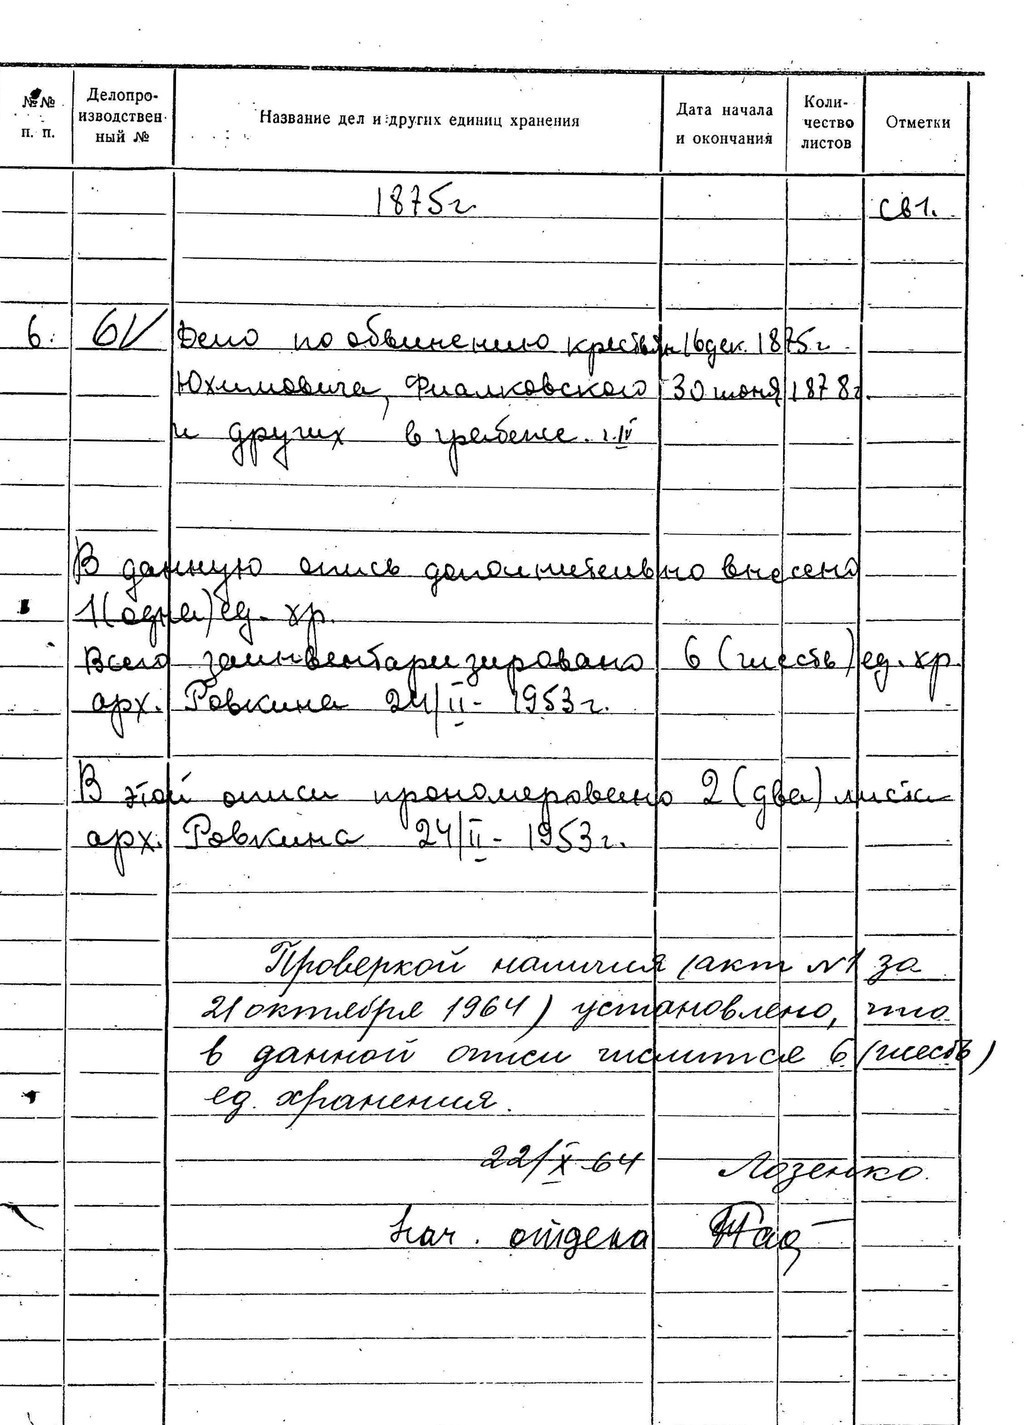 №№ п. п. Делопро-изводствен-ный № Название дел и других единиц хранения Дата начала и окончания Коли-чество листов Отметки
1875г св1.
6. 6V Дело по обвинению крестьян 16 дек. 1875г.
Юхимовича, Фиалковского 30 июня 1878г.
и других в грабеже. т. IV
В данную опись дополнительно внесено
1 (одна) ед. хр.
Всего заинвентаризировано 6 (шесть) ед. хр.
арх. Ровкина 24/II - 1953г.
В этой описи прономеровано 2 (два) листа
арх. Ровкина 24/II - 1953г.
Проверкой наличия (акт №1 за
21 октября 1964) установлено, что
в данной описи числится 6 (шесть)
ед. хранения.
22/X-64 Лозенко.
Нач. отдела